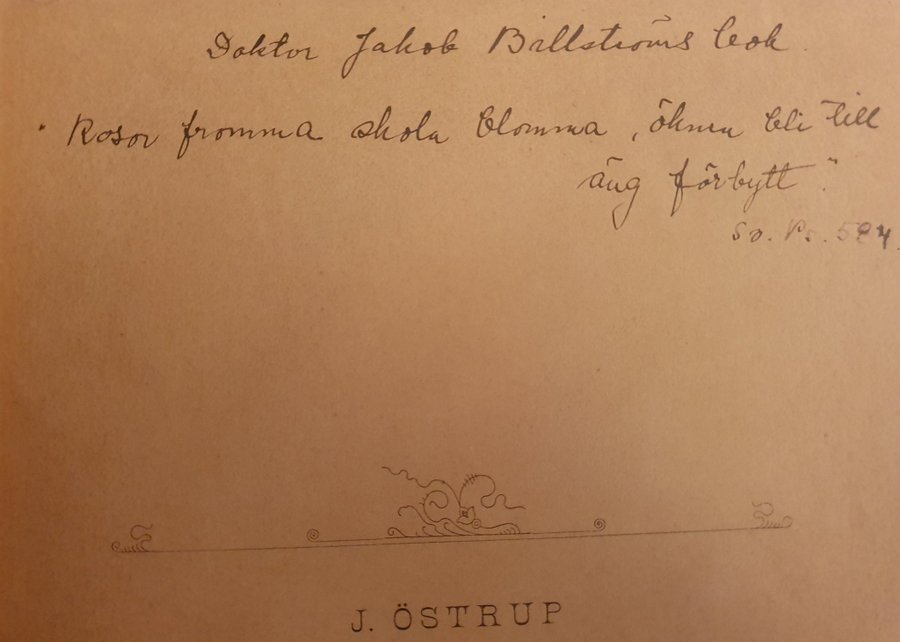 Doktor Jakob Billströms bok.
"Rosor fromma skola blomma, öknen bli till
äng förbytt."
Sv. Ps. 524.
J. ÖSTRUP